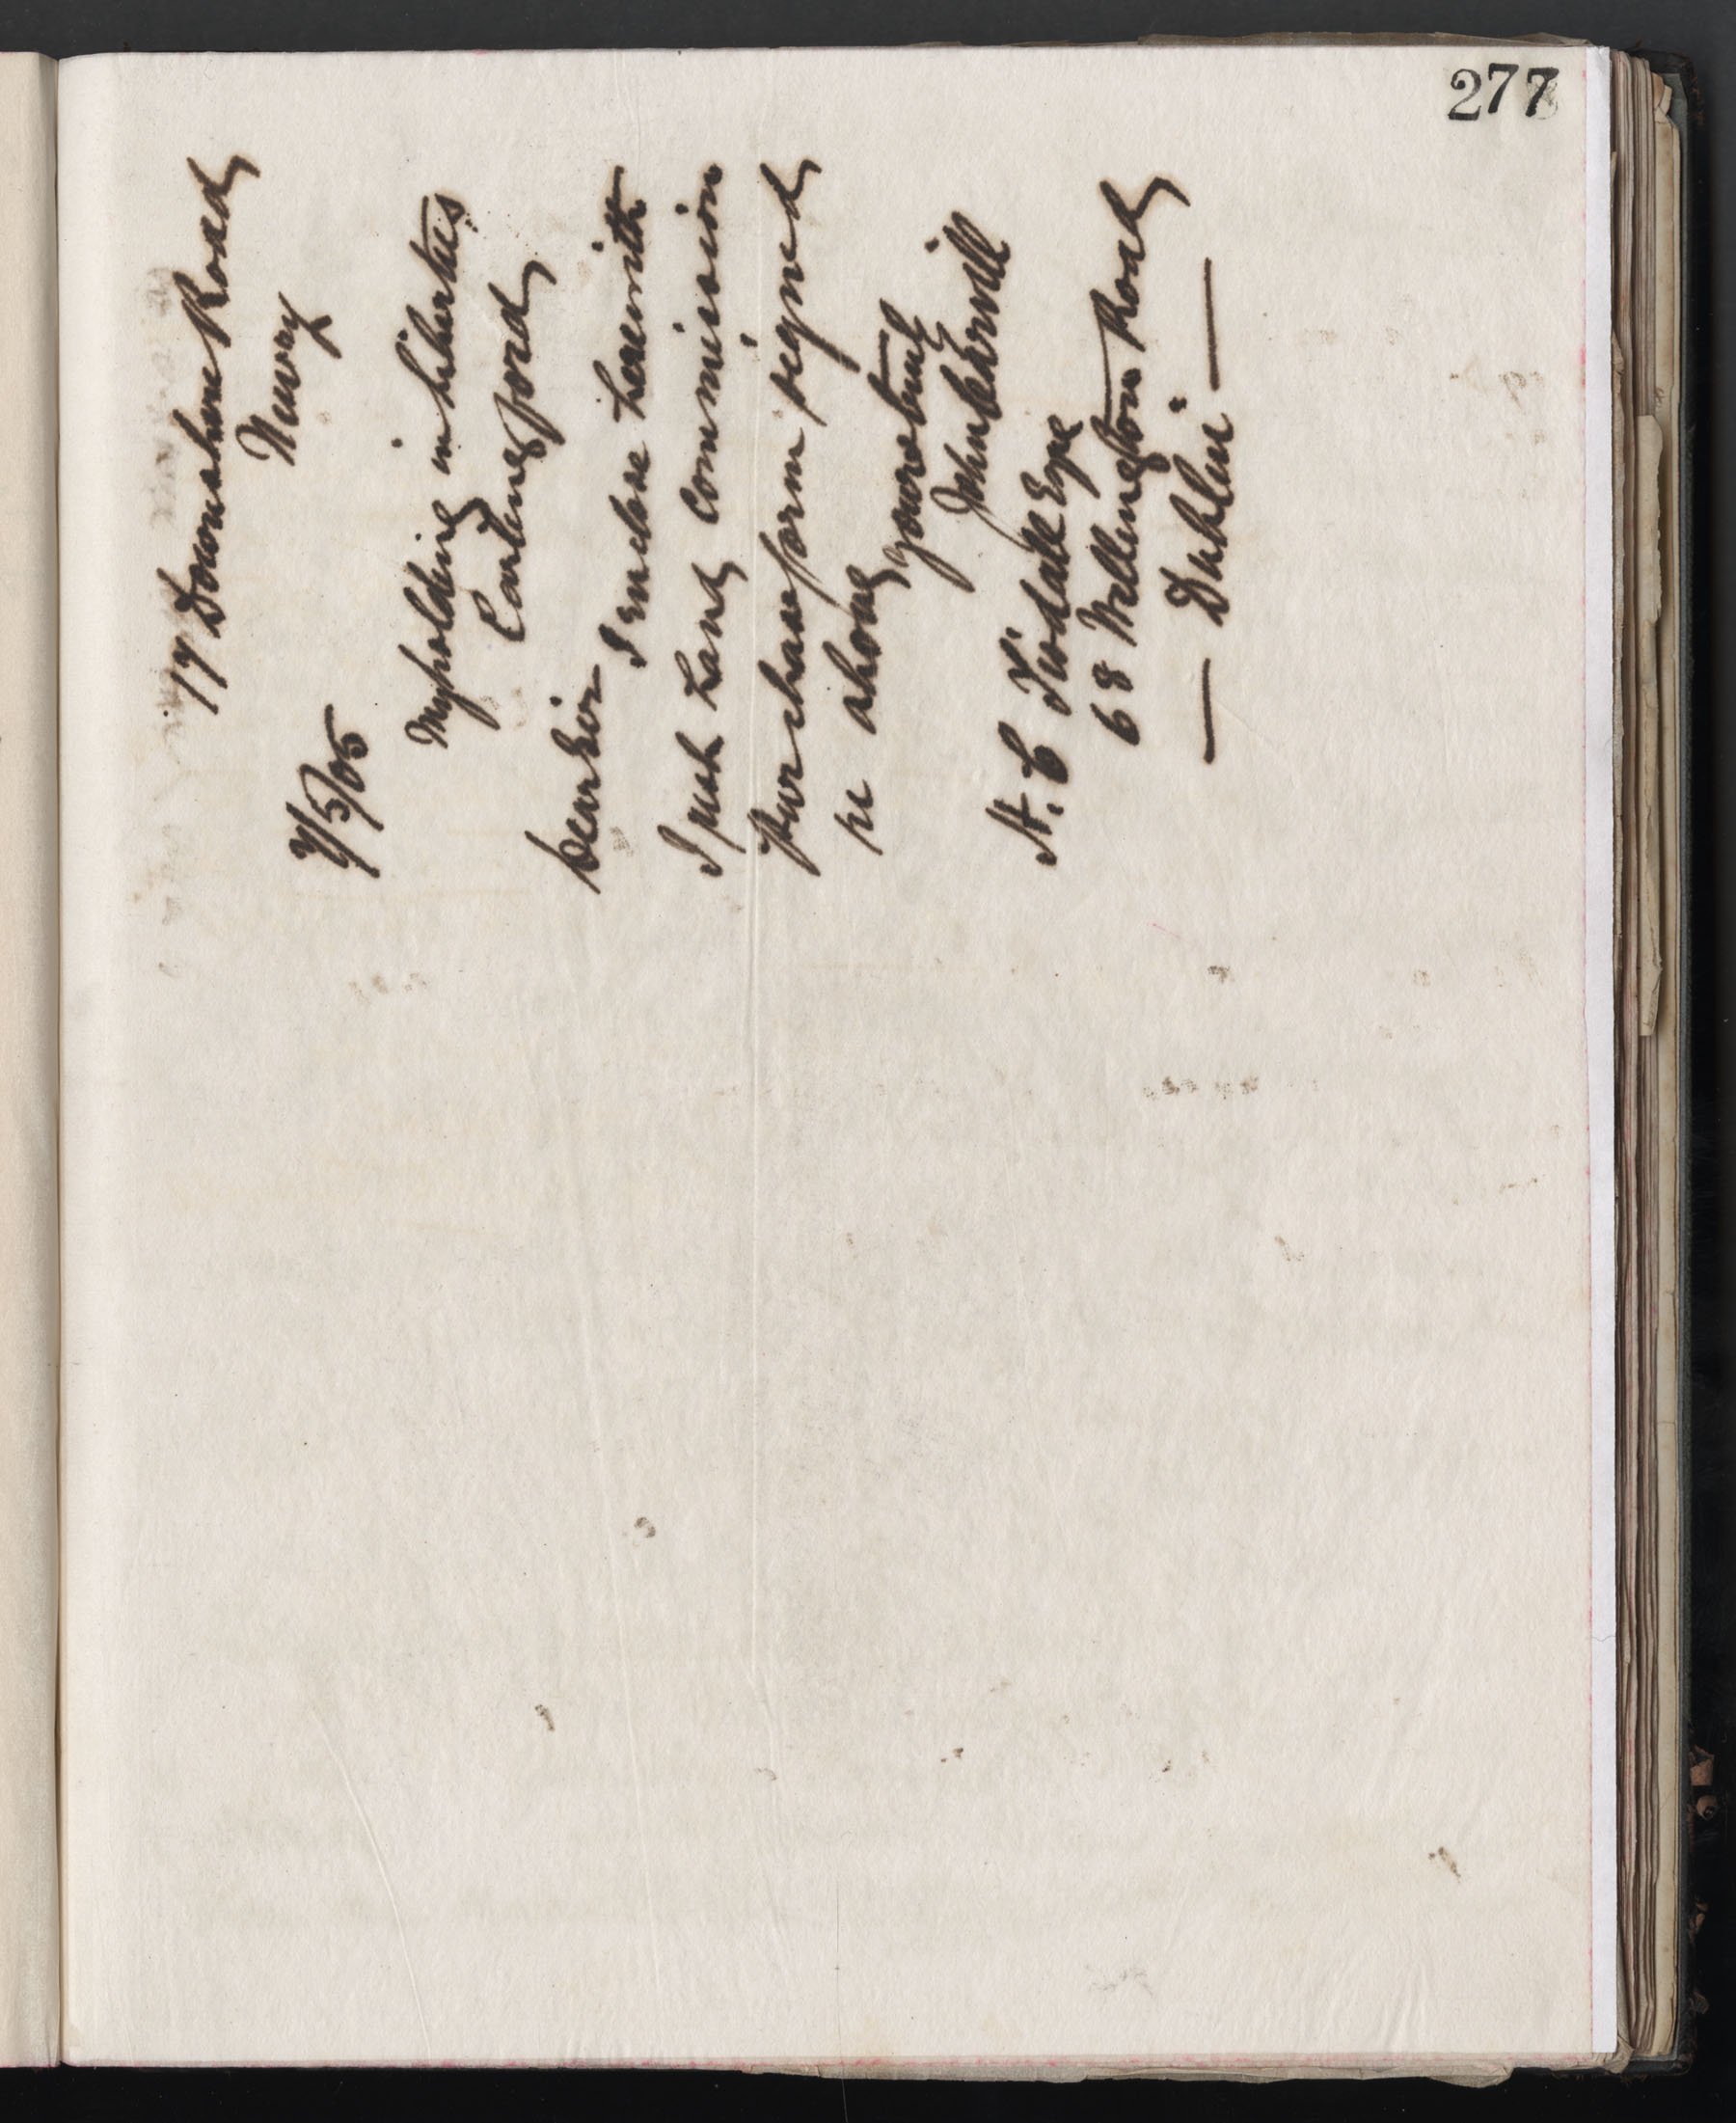 277
17 Downshire Road
Newry
7/5/05
My holding in Liberties
Carlingford
Dear Sir
I enclose herewith
Irish Land Commission
Purchase form signed
re above
yours truly
John
H. C Tisdall Esqre
68 Wellington Road
— Dublin —